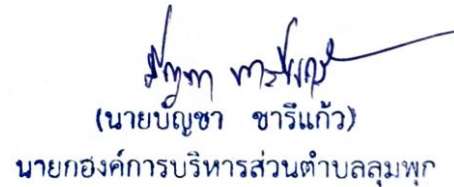 (นายบัญชา ชารีแก้ว)
นายกองค์การบริหารส่วนตำบลลุมพุก